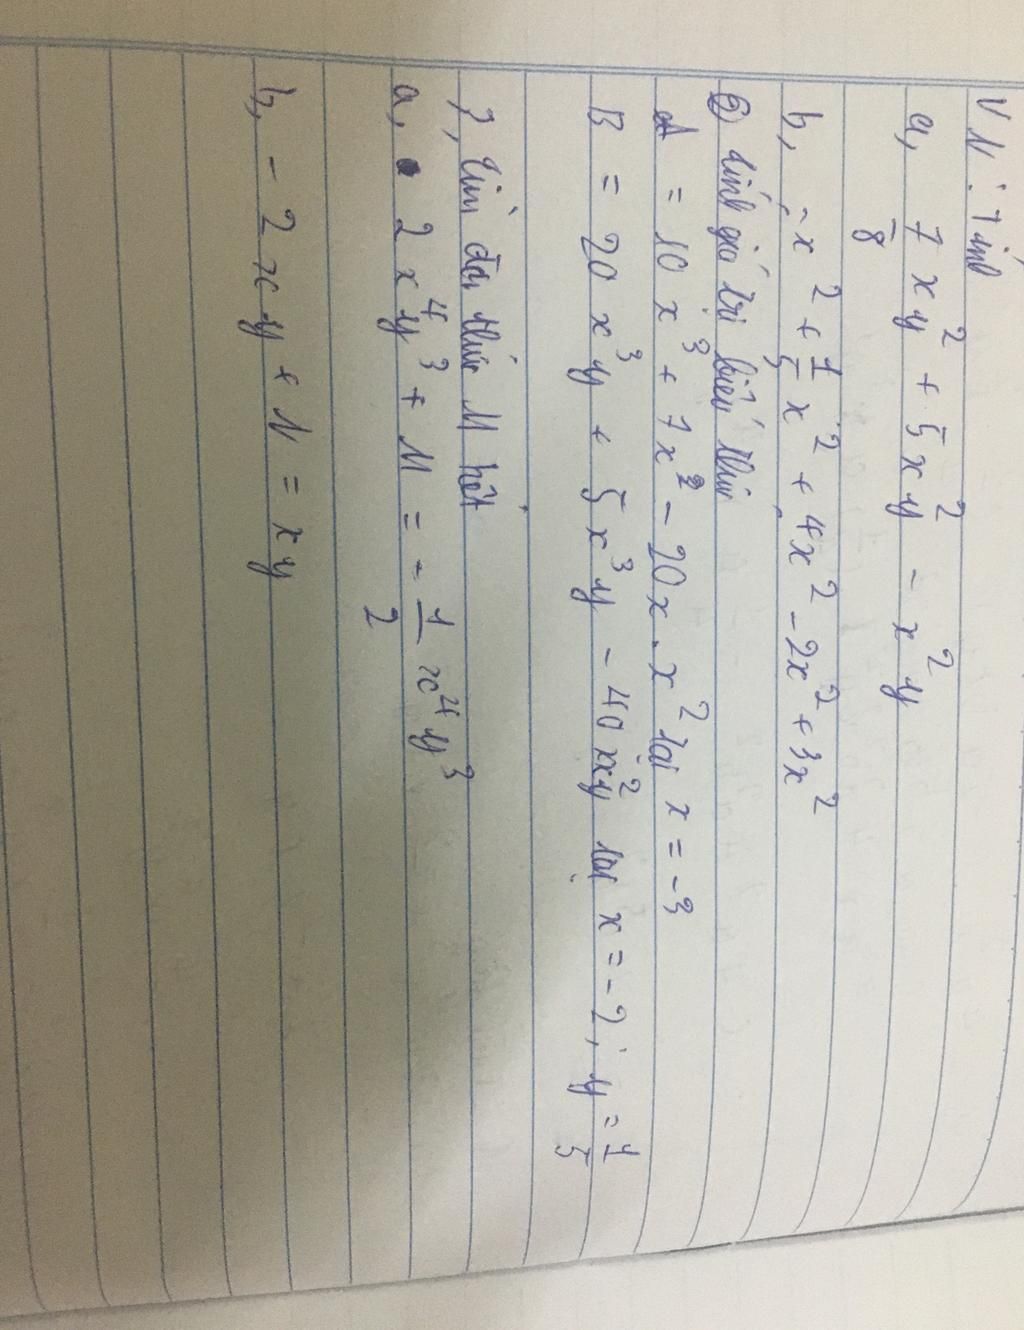 VN: Tính
a, 7/8 xy² + 5xy² - x²y
b, -x² + 1/5 x² + 4x² - 2x² + 3x²
⑥ tính giá trị biểu thức
A = 10x³ + 7x² - 20x.x² tại x = -3
B = 20x³y + 5x³y - 40xx²y tại x = -2; y = 1/5
7, Tìm đa thức M biết
a, 2x⁴y³ + M = - 1/2 x⁴y³
b, - 2xy + N = xy